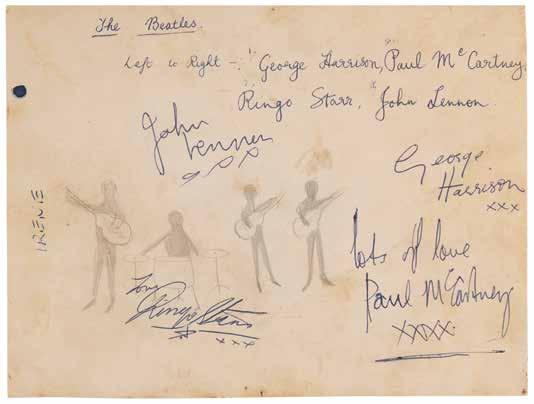 The Beatles.
Left to Right - "George Harrison, Paul McCartney,
Ringo Starr, John Lennon.
John
Lennon
xxx
George
Harrison
xxx
IRENE
lots of love
Paul McCartney
xxxx.
love
Ringo Starr
xxx